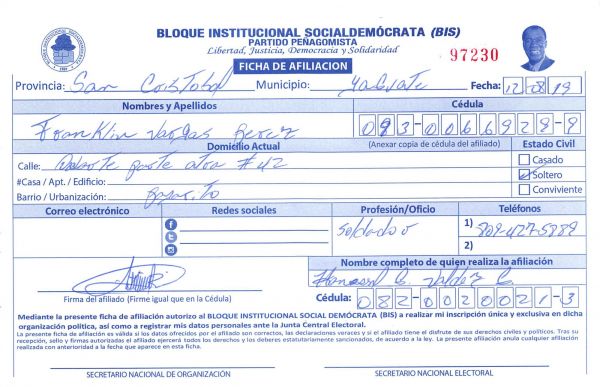 BLOQUE INSTITUCIONAL SOCIALDEMÓCRATA (BIS)
PARTIDO PEÑAGOMISTA
Libertad, Justicia, Democracia y Solidaridad
97230
FICHA DE AFILIACION
Provincia: San Cristobal Municipio: Yaguate Fecha: 12-08-19
Nombres y Apellidos Cédula
Franklin Vargas Perez 093-0066928-9
Domicilio Actual (Anexar copia de cédula del afiliado) Estado Civil
Calle: #42 Casado
#Casa / Apt. / Edificio: Soltero
Barrio / Urbanización: Conviviente
Correo electrónico Redes sociales Profesión/Oficio Teléfonos
Soldador 1) 809-427-5889
2)
Nombre completo de quien realiza la afiliación
Valdez
Firma del afiliado (Firme igual que en la Cédula) Cédula: 082-0020021-3
Mediante la presente ficha de afiliación autorizo al BLOQUE INSTITUCIONAL SOCIAL DEMÓCRATA (BIS) a realizar mi inscripción única y exclusiva en dicha
organización política, así como a registrar mis datos personales ante la Junta Central Electoral.
La presente ficha de afiliación es válida si los datos ofrecidos por el afiliado son correctos, las declaraciones voraces y si el afiliado tiene el disfrute de sus derechos civiles y políticos. Tras su
recepción, sello y firmas autorizadas el afiliado ejercerá todos los derechos y los deberes estatutariamente sancionados, de acuerdo a la ley. La presente afiliación anula cualquier afiliación
realizada con anterioridad a la fecha que aparece en esta ficha.
SECRETARIO NACIONAL DE ORGANIZACIÓN SECRETARIO NACIONAL ELECTORAL